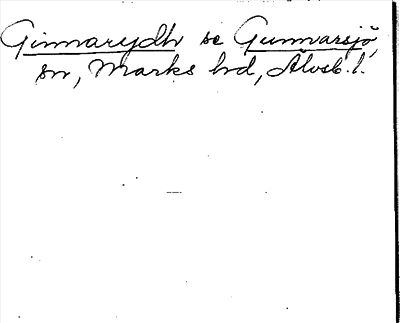 Ginnarydh se Gunnarsjö,
sn, Marks hd, Älvsb. l.